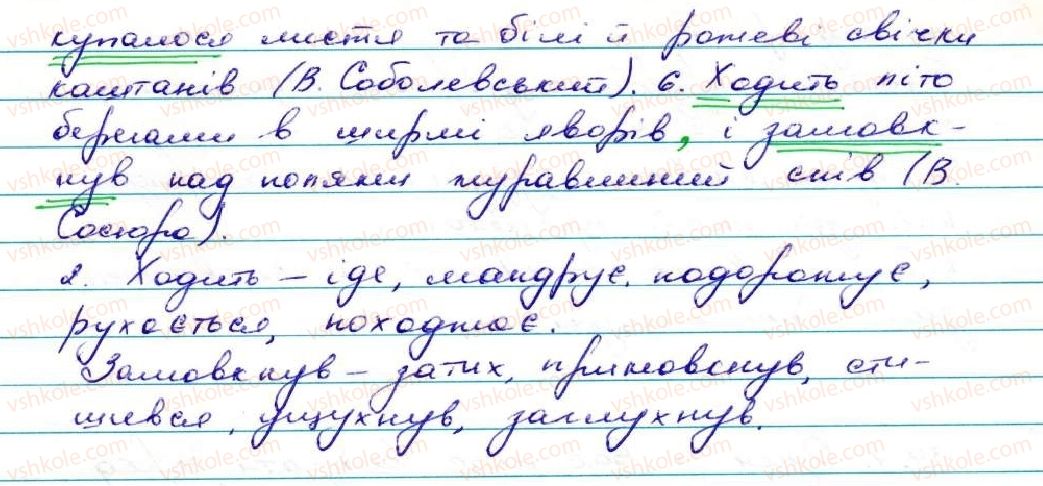 купалося листя та білі й рожеві свічки
каштанів (В. Соболевський). 6. Ходить літо
берегами в ширмі яворів, і замовк-
нув над полями журавлиний спів (В.
Сосюра).
2. Ходить – іде, мандрує, подорожує,
рухається, походжає.
Замовкнув – затих, примовкнув, сти-
шився, ущухнув, заглухнув.